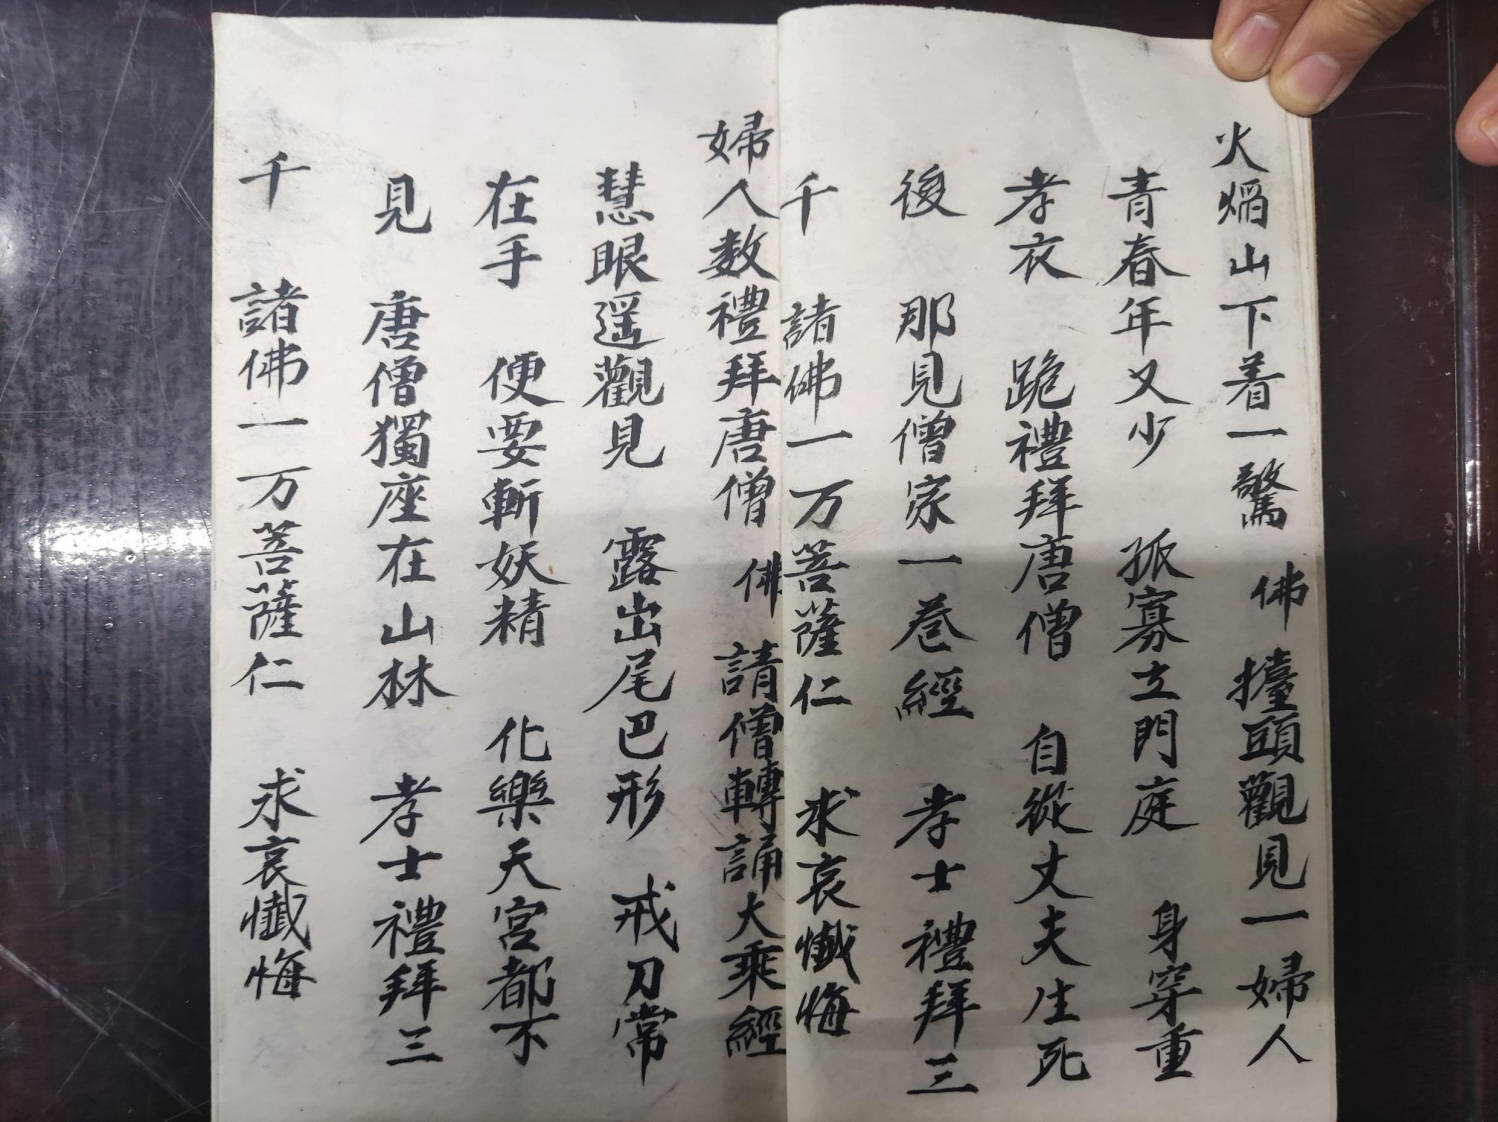 火熖山下着一驚 佛 擡頭觀見一婦人
青春年又少 孤寡立門庭 身穿重
孝衣 跪禮拜唐僧 自從丈夫生死
後 那見僧家一卷經 孝士禮拜三
千 諸佛一万菩薩仁 求哀懺悔
婦人数禮拜唐僧 佛 請僧轉誦大乘經
慧眼遥觀見 露出尾巴形 戒刀常
在手 便要斬妖精 化樂天宮都不
見 唐僧獨座在山林 孝士禮拜三
千 諸佛一万菩薩仁 求哀懺悔